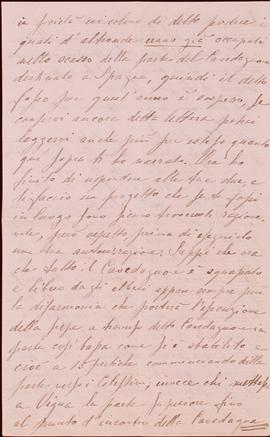 in società vi colono di detto podere i
quali d'altronde erano già occupati
nello scasso della parte del Cavedagnone
destinato a Spagna, quindi il detto
fosso per quest'anno è sospeso, se
conservi ancora detta lettera potrai
leggervi anche più per esteso quanto
qui sopra ti ho narrato. Ora ho
finito di rispondere alle tue due, e
ti faccio un progetto che se ti fossi
in luogo sono pieno troveresti ragione
vole, però aspetto prima di eseguirlo
una tua autorizzazione. Sappi che ora
che tutto il Cavedagnone è sgombrato
e libero dagli alberi appare sempre più
la disarmonia che porterà l'esecuzione
della siepe a tramp detto Cavedagnone in
parte così larga come si è stabilito e
cioè a 15 pertiche cominciando dalla
parte verso i Celestini, invece che mettesse
a Vigna la parte superiore fino
al punto d'incontro della Cavedagna